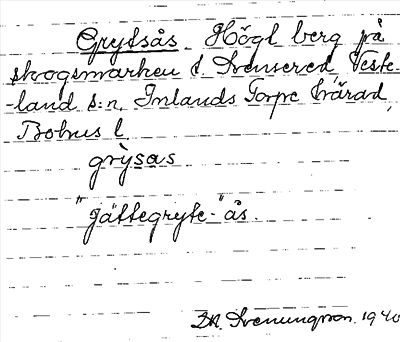 Grytsås. Högt berg på
skogsmarken t. Svensered, Veste-
-land s:n, Inlands Torpe härad,
Bohus l.
grỳsas
"Jättegryte-"ås.
D.N. Svenungsson. 1940